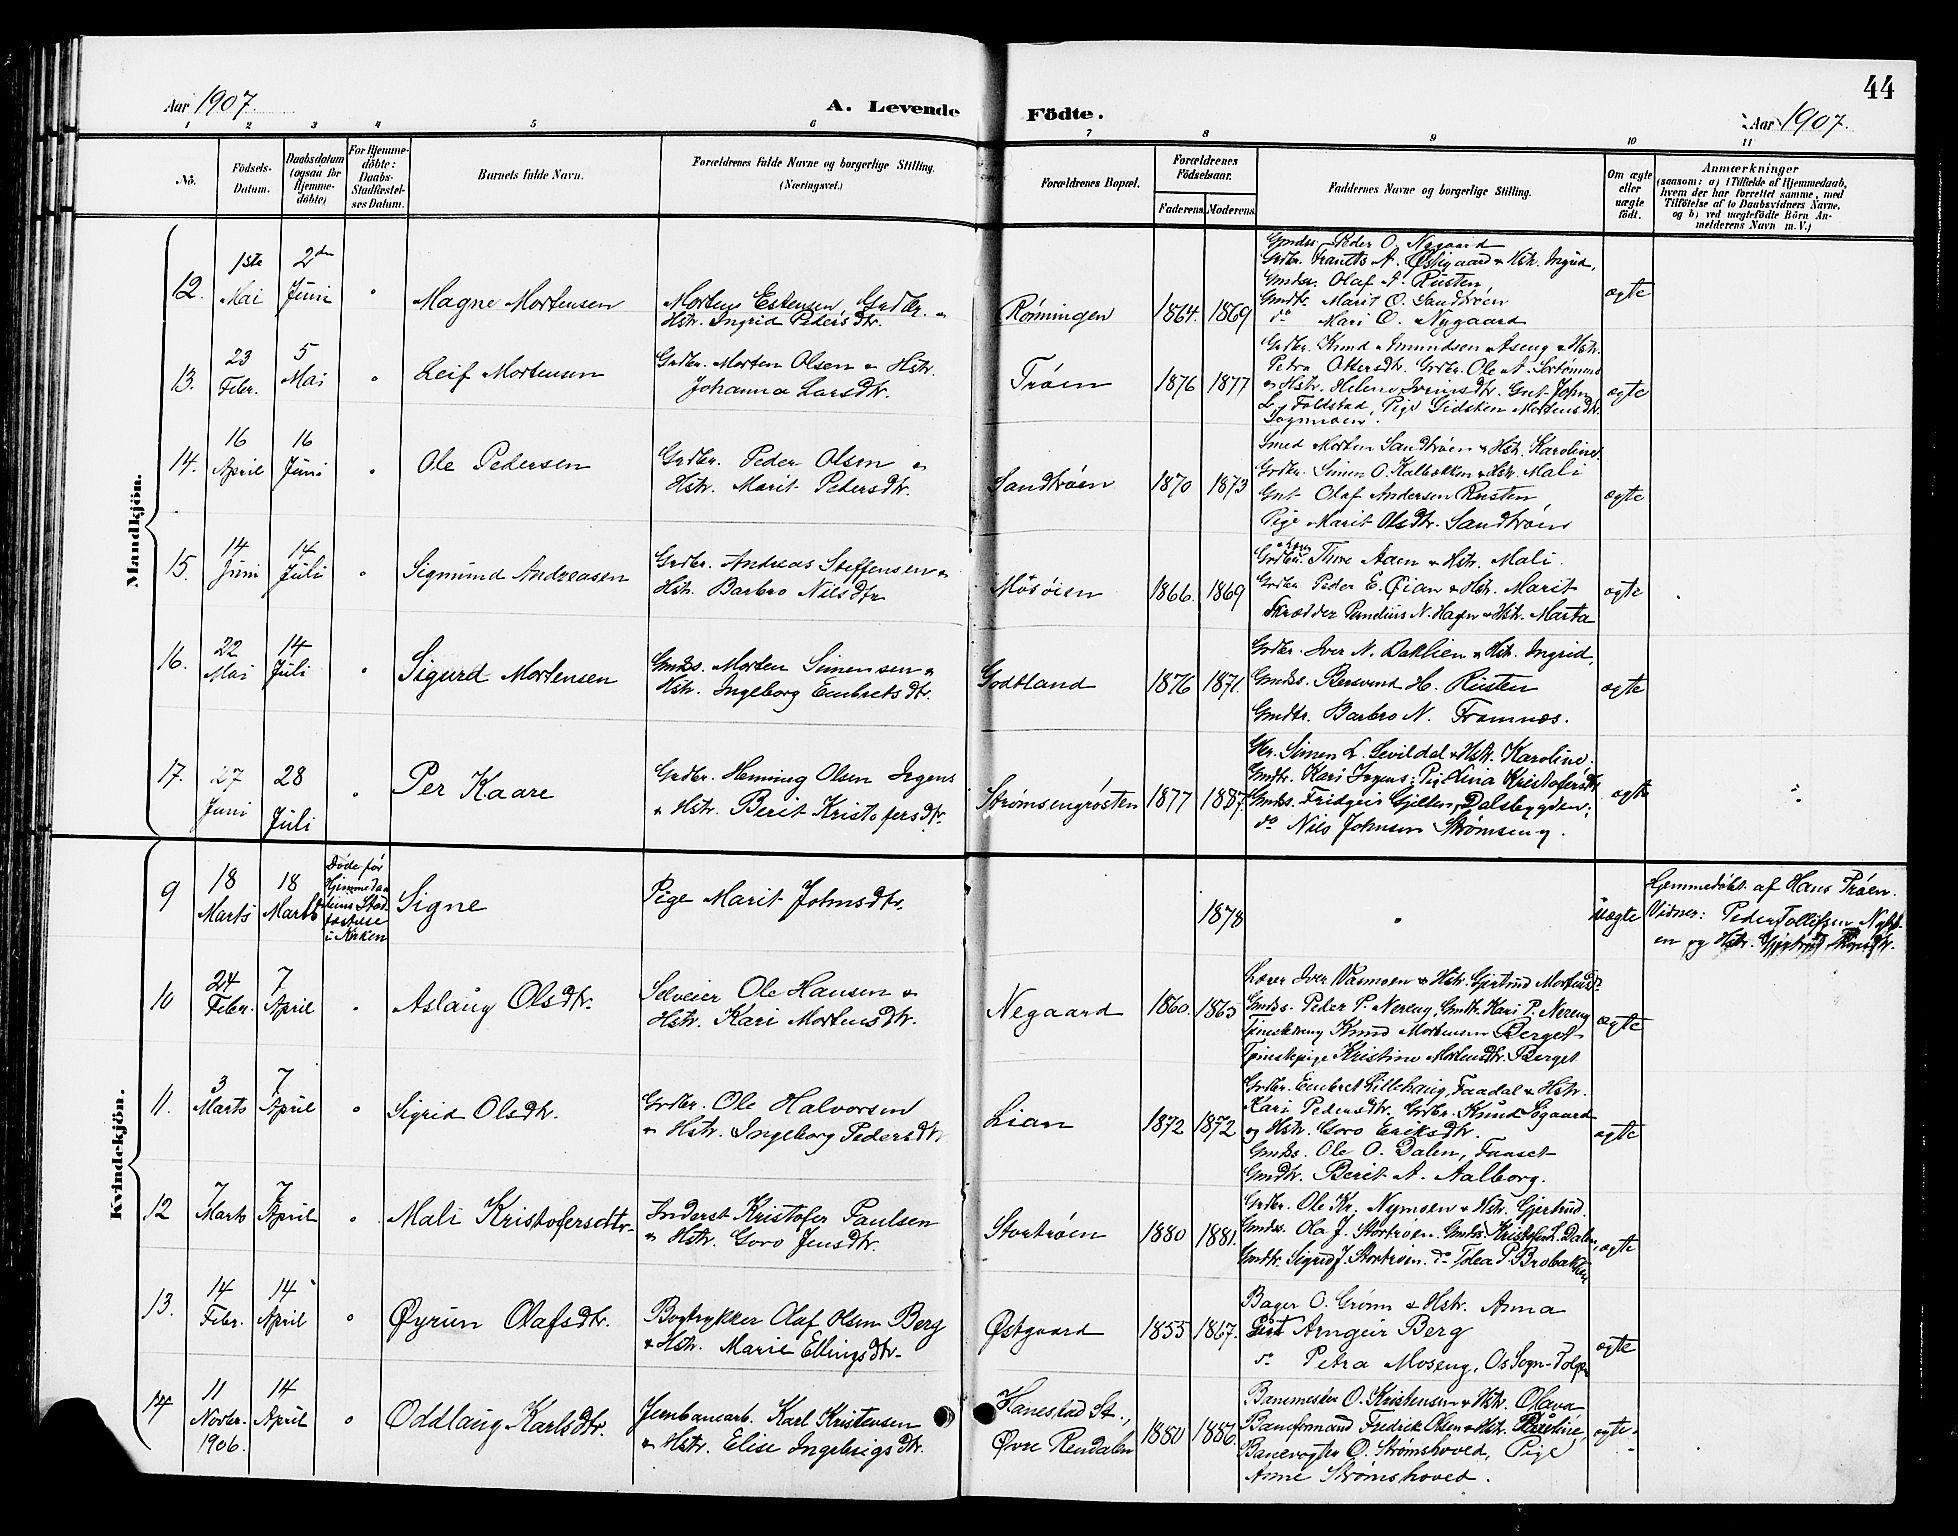 44
Aar 1907.
A. Levende
Födte.
Aar 1907.
1 2 3 4 5 6 7 8 9 10 11
No.
Födsels-Datum.
Daabsdatum (ogsaa for Hjemme-döbte)
For Hjemme-döbte: Daabs-Stadfæstel-ses Datum.
Barnets fulde Navn.
Forældrenes fulde Navne og borgerlige Stilling.
(Næringsvei.)
Forældrenes Bopæl.
Forældrenes Födselsaar.
Faderens.
Moderens.
Faddernes Navne og borgerlige Stilling.
Om ægte eller uægte födt.
Anmærkninger
(saasom: a) i Tilfælde af Hjemmedaab, hvem der har forrettet samme, med Tilföielse af to Daabsvidners Navne, og b) ved uægtefödte Börn An-melderens Navn m. V.)
Mandkjön.
12. 1ste Mai 2den Juni " Magne Mortensen
Morten Estensen, Grdbr. &
Hstr. Ingrid Pedersdtr.
Rønningen 1864. 1869
Gmdss. Peder O. Nygaard
Grdbr. Frantts A. Østgaard & Hstr. Ingrid,
Gmdss. Olaf A. Rusten
Gmdtr. Marit O. Sandtrøen
do Mari O. Nygaard
ægte
13. 23 Febr. 5 Mai " Leif Mortensen
Grdbr. Morten Olsen & Hstr.
Johanna Larsdtr.
Trøen 1876 1877
Grdbr. Knud Amundsen Aseng & Hstr.
Petra Ottersdtr. Grdbr. Ole A.
& Hstr. Helene Iversdtr. Gnt. John
L. Foldstad, Pige Gidsken Mortensdtr.
ægte
14. 16 April 16 Juni " Ole Pedersen
Grdbr. Peder Olsen &
Hstr. Marit Pedersdtr.
Sandtrøen 1870 1873
Smed Morten Sandtrøen & Hstr. Karoline.
Grdbr. Simen O. Kalbækken & Hstr. Mali
Gnt. Olaf Andersen Rusten
Pige Marit Olsdtr. Sandtrøen
ægte
15. 14 Juni 14 Juli " Sigmund Andreasen
Grdbr. Andreas Steffensen &
Hstr. Barbro Nilsdtr
Mosøien 1866. 1869
Grdbr. Thore Aaen & Hstr. Mali.
Grdbr. Peder E. Øian & Hstr. Marit
Skrædder N. Hagen & Hstr. Marta
ægte
16. 22 Mai 14 Juli " Sigurd Mortensen
Gmdss. Morten Simensen &
Hstr. Ingeborg Embretsdtr.
Godtland 1876 1871.
Grdbr. Iver N. Baklien & Hstr. Ingrid,
Gmdss. Bersvend H. Rusten
Gmdtr. Barbro N. Framnæs.
ægte
17. 27 Juni 28 Juli " Per Kaare
Grdbr. Henning Olsen Jegens
& Hstr. Berit Kristofersdtr.
Strømsengrøsten 1877 1887.
Simen L. Sevildal & Hstr. Karoline.
Gmdtr. Kari Jogens; Pige Lina Kristofersdtr
Gmdss. Fridgeir Gjelten, Dalsbygden;
do Nils Johnsen Strømseng.
ægte "
Kvindekjön.
9 18 Marts 18 Marts
Døde før Hjemmedaabens Stadfæstelse i Kirken
Signe
Pige Marit Johnsdtr.
1878 "
uægte
Hjemmedøbt af Hans Trøen.
Vidner: Peder Tollefsen
en og Hstr. Gjertrud
10 24 Febr. 7 April " Aslaug Olsdtr.
Selveier Ole Hansen &
Hstr. Kari Mortensdtr.
Negaard 1860. 1865
Lærer Iver Vasmoen & Hstr. Gjertrud Mortensdr.
Gmdss. Peder P. Nereng, Gmdtr. Kari P. Nereng
Tjenestedreng Knud Mortensen Berget
Tjenestepige Kristine Mortensdtr. Berget
ægte
11. 3 Marts 7 April " Sigrid Olsdtr.
Grdbr. Ole Halvorsen
& Hstr. Ingeborg Pedersdtr
Lian 1872 1872
Grdbr. Embret Lillehaug, Faadal & Hstr.
Kari Pedersdtr, Grdbr. Knud Søgaard
og Hstr. Goro Eriksdtr.
Gmdss. Ole O. Dalen, Faaset
Gmdtr. Berit A. Aalborg.
ægte
12 7 Marts 7 April " Mali Kristofersdtr.
Inderst Kristofer Paulsen
& Hstr. Goro Jensdtr.
Stortrøen 1880 1881.
Grdbr. Ole Kr. Nymoen & Hstr. Gjertrud.
Gmdss. Ola J. Stortrøen. Gmdss. Kristofer L. Dalen,
Gmdtr. Sigrid J. Stortrøen. do Tolea P. Brobakken
ægte
13. 14 Febr. 14 April " Øyrun Olafsdtr.
Bogtrykker Olaf Olsen Berg
& Hstr. Marie Ellingsdtr.
Østgaard 1855 1867.
Bager O. Grønn & Hstr. Anna
Arngeir Berg
do Petra Moseng, Os Sogn-Tolgen
ægte
14 11 Novbr. 1906. 14 April " Oddlaug Karlsdtr.
Jernbanearb. Karl Kristensen
& Hstr. Elise Ingebrigsdtr.
Hanestad St.,
Øvre Rendalen
1880 1886.
Banemester O. Kristensen & Hstr. Olava
Baneformand Fredrik Olsen & Hstr. Pauline,
Banevogter O. Strømshoved, Pige
Anne Strømshoved.
ægte.